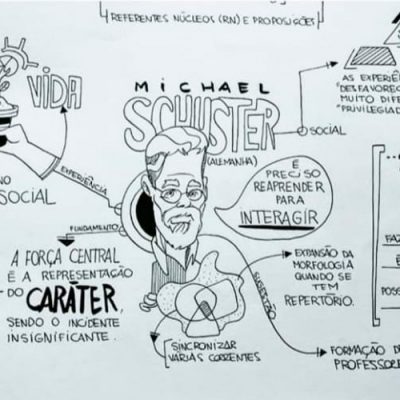 REFERENTES NÚCLEOS (RN) E PROPOSIÇÕES
VIDA
MICHAEL
SCHUSTER
(ALEMANHA)
SOCIAL
AS EXPERIÊ
"DESFAVOREC
MUITO DIFE
"PRIVILEGIAD
EXPERIÊNCIA
NO
SOCIAL
É
PRECISO
REAPRENDER
PARA
INTERAGIR
FUNDAMENTO
A FORÇA CENTRAL
É A REPRESENTAÇÃO
DO CARÁTER,
SENDO O INCIDENTE
INSIGNIFICANTE.
EXPANSÃO DA
MORFOLOGIA
QUANDO SE
TEM
REPERTÓRIO.
SUGESTÃO
SINCRONIZAR
VÁRIAS CORRENTES
FORMAÇÃO DE
PROFESSORE
FAZ
E
POSS